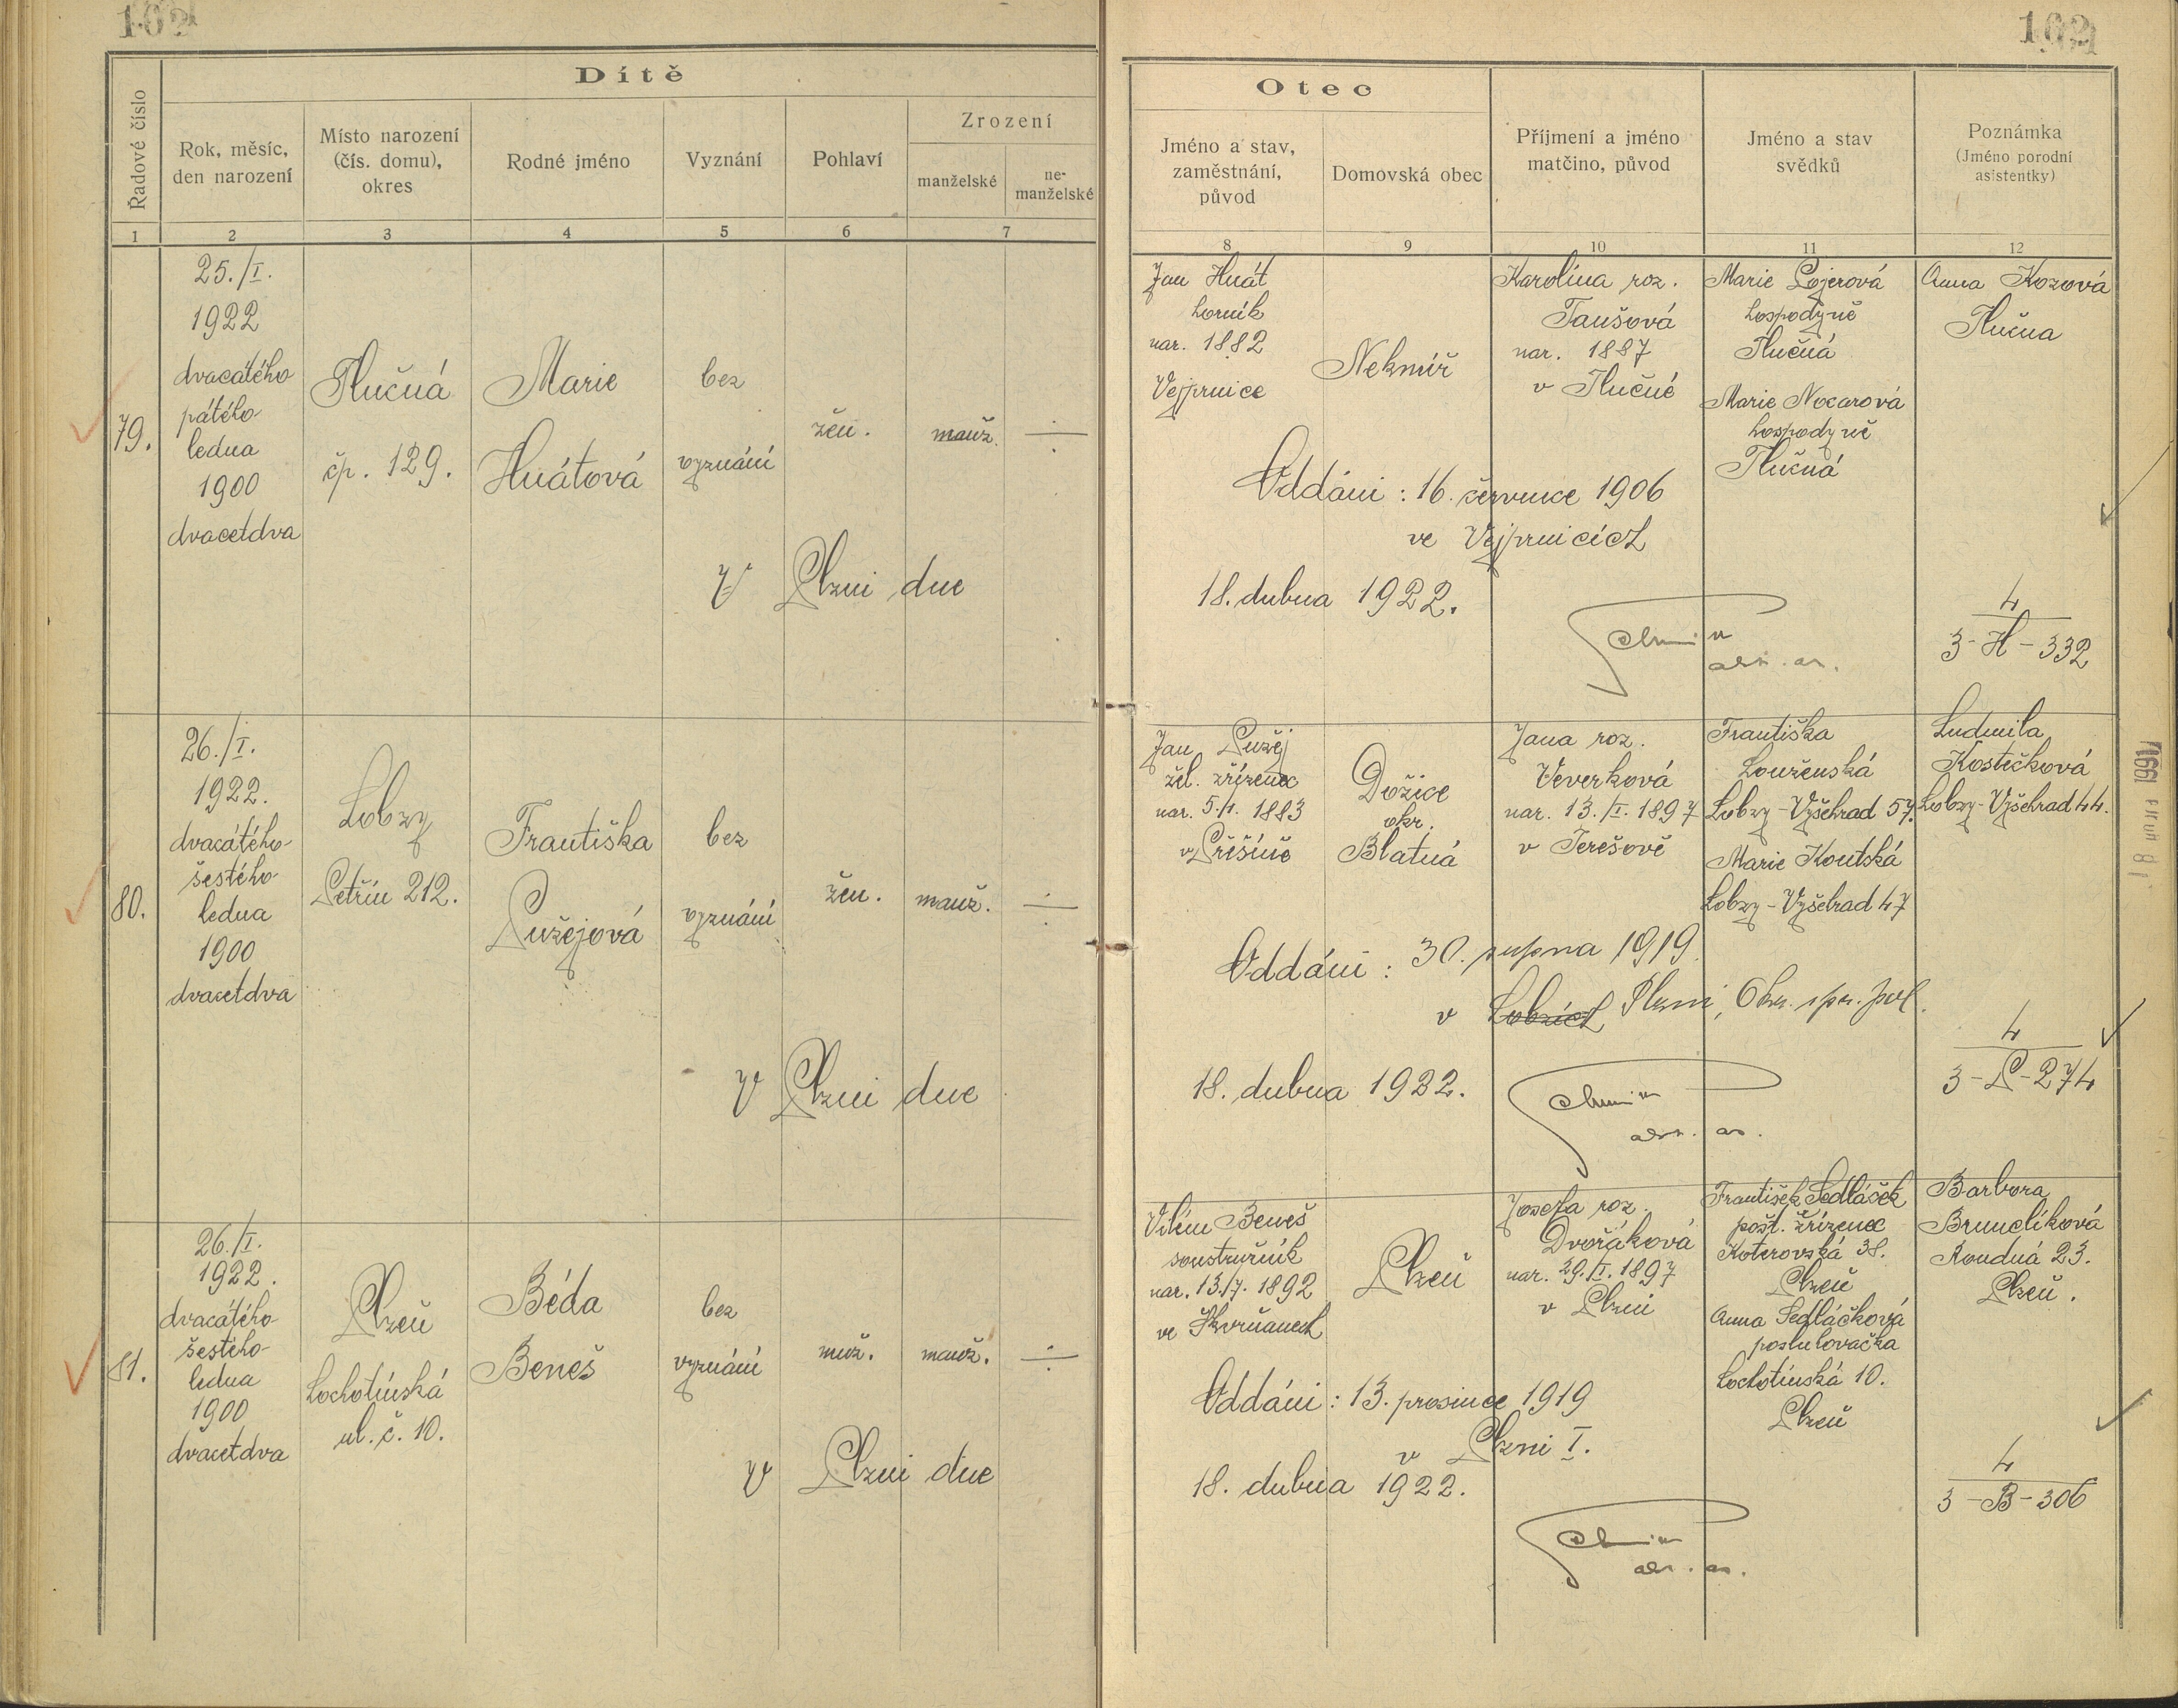 162
Dítě
Řadové číslo
Rok, měsíc,
den narození
Místo narození
(čís. domu),
okres
Rodné jméno
Vyznání
Pohlaví
Zrození
manželské
ne-
manželské
1 2 3 4 5 6 7
79.
25./I.
1922
dvacátého
pátého
ledna
1900
dvacetdva
Tlučná
čp. 129.
Marie
Hnátová
bez
vyznání
žen.
manž.
V Plzni dne
80.
26./I.
1922.
dvacátého
šestého
ledna
1900
dvacetdva
Lobzy
Petřín 212.
Františka
Pužejová
bez
vyznání
žen.
manž.
V Plzni dne
81.
26./I.
1922.
dvacátého
šestého
ledna
1900
dvacetdva
Plzeň
Lochotínská
ul. č. 10.
Béda
Beneš
bez
vyznání
muž.
manž.
V Plzni dne
162
Otec
Jméno a stav,
zaměstnání,
původ
Domovská obec
Příjmení a jméno
matčino, původ
Jméno a stav
svědků
Poznámka
(Jméno porodní
asistentky)
8 9 10 11 12
Jan Hnát
horník
nar. 1882
Vejprnice
Nekmíř
Karolína roz.
Taušová
nar. 1887
v Tlučné
Marie Pojerová
hospodyně
Tlučná
Marie Nocarová
hospodyně
Tlučná
Anna Kozová
Tlučna
Oddáni: 16. července 1906
ve Vejprnicích
18. dubna 1922.
4
3-H-332
Jan Pužej
žel. zřízenec
nar. 5./I. 1883
v Příšíně
Dožice
okr.
Blatná
Jana roz.
Veverková
nar. 13./I. 1897
v Terešově
Františka
Louženská
Lobzy-Vyšehrad 57.
Marie Koutská
Lobzy-Vyšehrad 47
Ludmila
Kostečková
Lobzy-Vyšehrad 44.
Oddáni: 30. srpna 1919.
v Lobzích Plzni, Okr. spr. pol.
18. dubna 1922.
4
3-P-274
Vilém Beneš
soustružník
nar. 13./7. 1892
ve Skvrňanech
Plzeň
Josefa roz.
Dvořáková
nar. 29./I. 1897
v Plzni
František Sedláček
pošt. zřízenec
Koterovská 38.
Plzeň
Anna Sedláčková
posluhovačka
Lochotínská 10.
Plzeň
Barbora
Brunclíková
Roudná 23.
Plzeň.
Oddáni: 13. prosince 1919
v Plzni I.
18. dubna 1922.
4
3-B-306